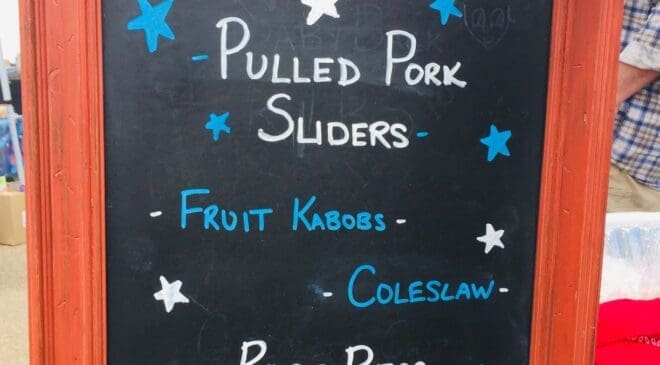 - Pulled Pork
Sliders -
- Fruit Kabobs -
- Coleslaw -